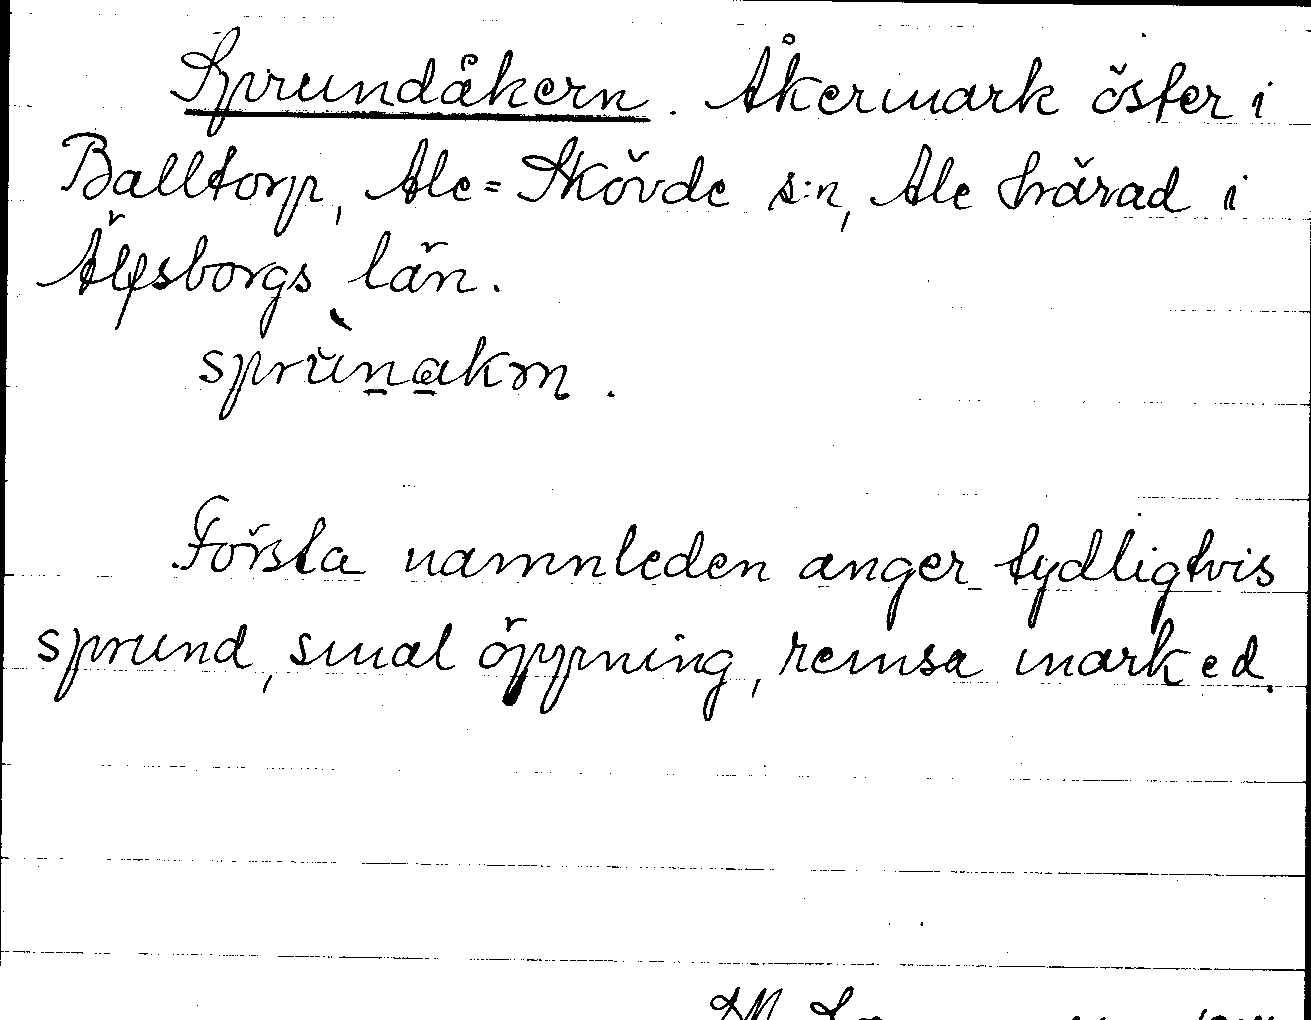 Sprundåkern. Åkermark öster i
Balltorp, Ale=Skövde s:n, Ale härad i
Älfsborgs län.
sprùnakrn.
Första namnleden anger tydligtvis
sprund, smal öppning, remsa mark e d.